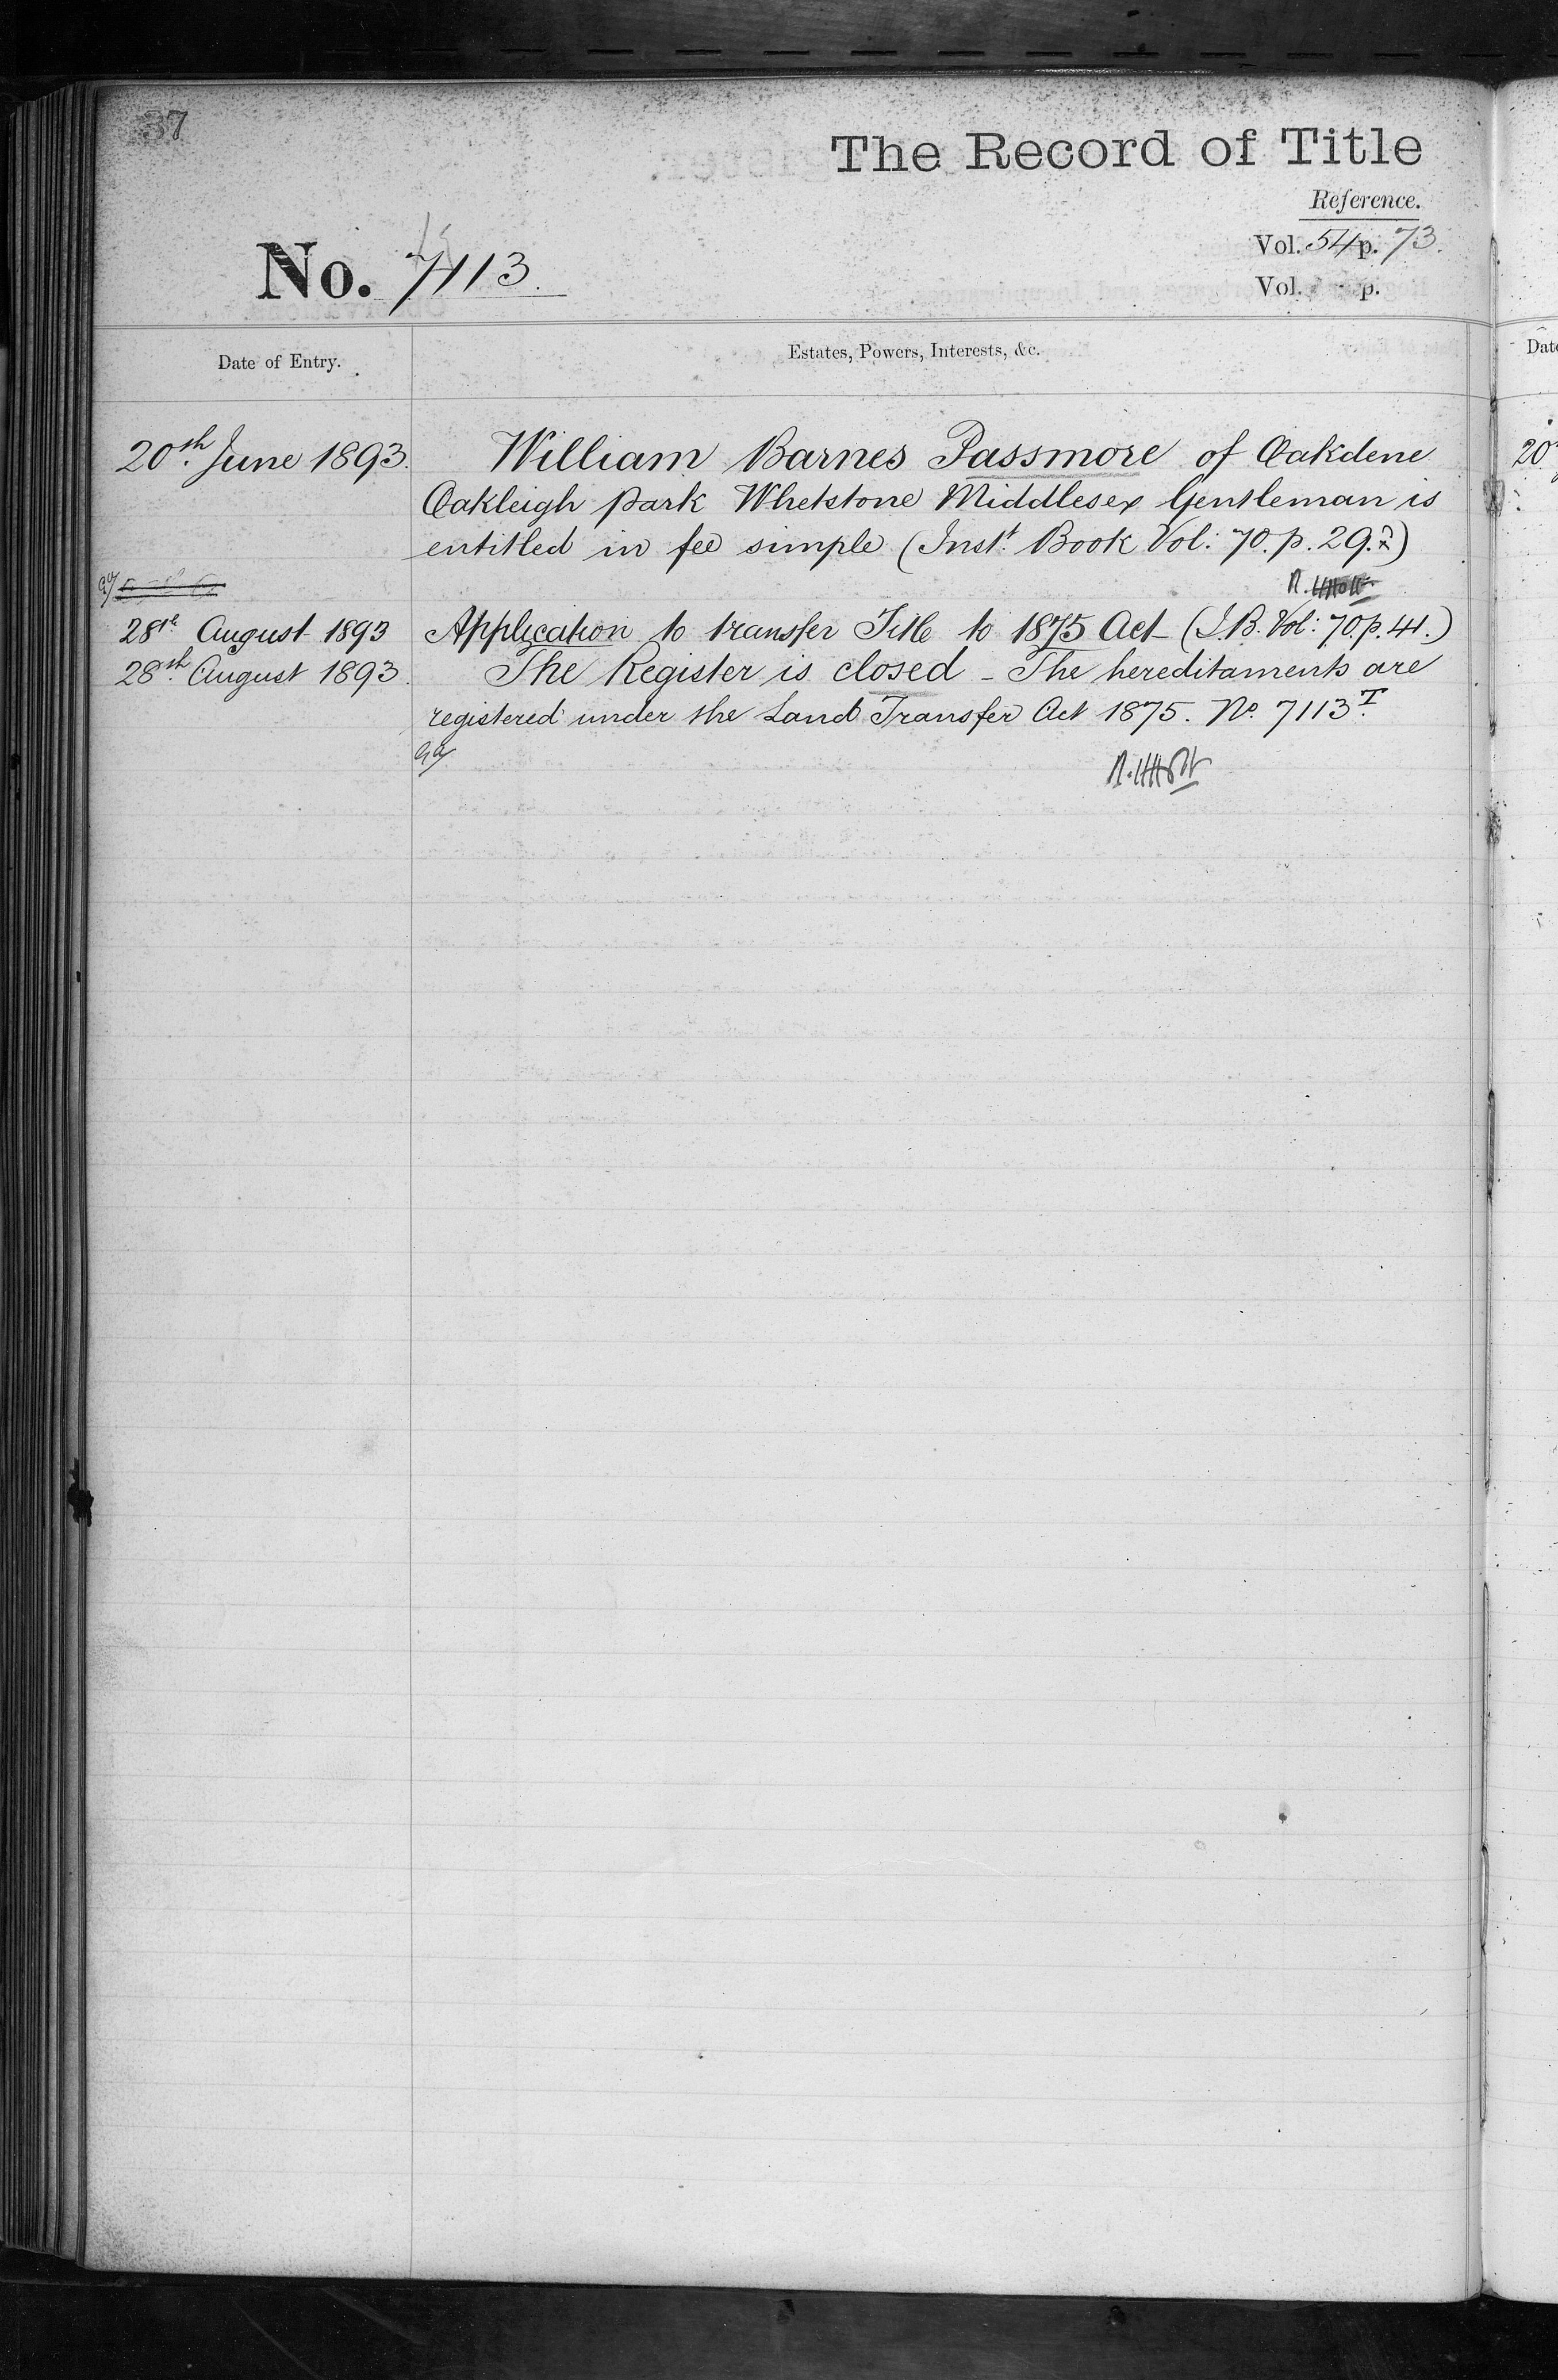 37
The Record of Title
Reference.
Vol. 54 p. 73.
No. 7113.
Vol. p.
Date of Entry.
Estates, Powers, Interests, &c.
20th June 1893. William Barnes Passmore of Oakdene
Oakleigh Park Whetstone Middlesex Gentleman is
entitled in fee simple (Inst. Book Vol: 70. p. 29.)
28th August 1893 Application to transfer Title to 1875 Act (I.B. Vol: 70. p. 41.)
28th August 1893. The Register is closed - The hereditaments are
registered under the Land Transfer Act 1875. No. 7113 T.
Date
20